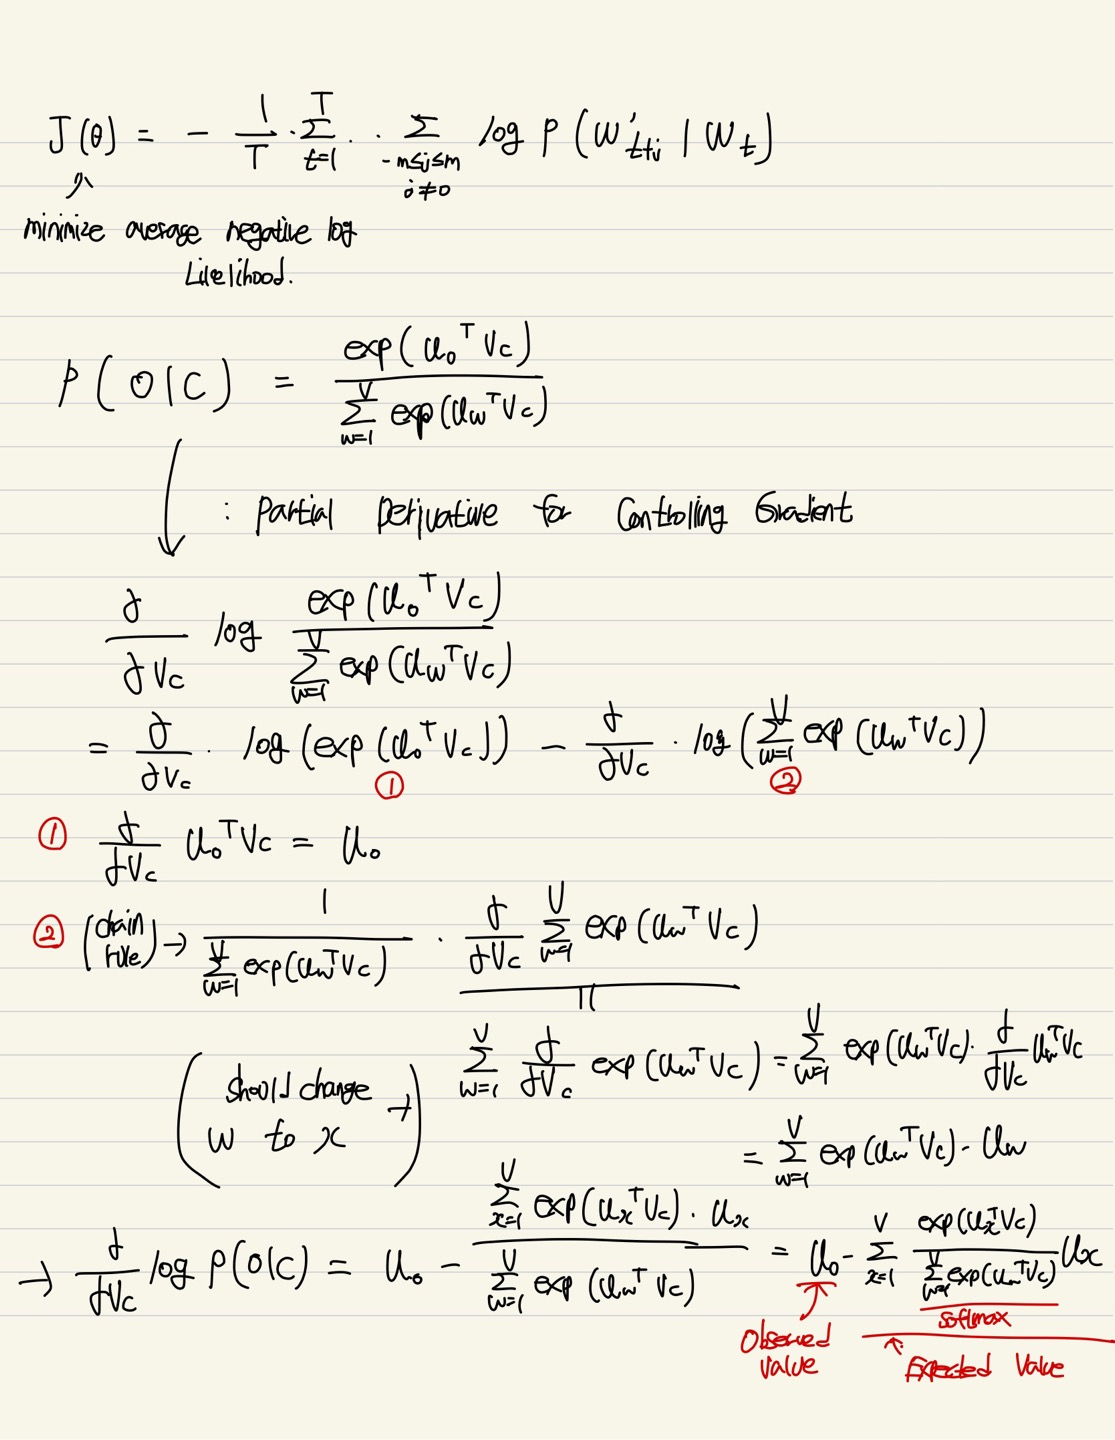 J(θ) = - 1/T · Σ_{t=1}^{T} · · Σ_{-m≤j≤m, j≠0} log p(w'_{t+j} | w_t)
↗
minimize average negative log
Likelihood.
p(o|c) = exp(u_o^T v_c) / Σ_{w=1}^{V} exp(u_w^T v_c)
↓ : Partial Derivative for Controlling Gradient
∂/∂v_c log exp(u_o^T v_c) / Σ_{w=1}^{V} exp(u_w^T v_c)
= ∂/∂v_c · log(exp(u_o^T v_c)) - ∂/∂v_c · log(Σ_{w=1}^{V} exp(u_w^T v_c))
① ②
① ∂/∂v_c u_o^T v_c = u_o
② (chain rule) → 1 / Σ_{w=1}^{V} exp(u_w^T v_c) · ∂/∂v_c Σ_{w=1}^{V} exp(u_w^T v_c)
||
Σ_{w=1}^{V} ∂/∂v_c exp(u_w^T v_c) = Σ_{w=1}^{V} exp(u_w^T v_c) · ∂/∂v_c u_w^T v_c
(should change
w to x →)
= Σ_{w=1}^{V} exp(u_w^T v_c) · u_w
→ ∂/∂v_c log p(o|c) = u_o - Σ_{x=1}^{V} exp(u_x^T v_c) · u_x / Σ_{w=1}^{V} exp(u_w^T v_c) = u_o - Σ_{x=1}^{V} exp(u_x^T v_c) / Σ_{w=1}^{V} exp(u_w^T v_c) u_x
softmax
Observed
value
Expected Value